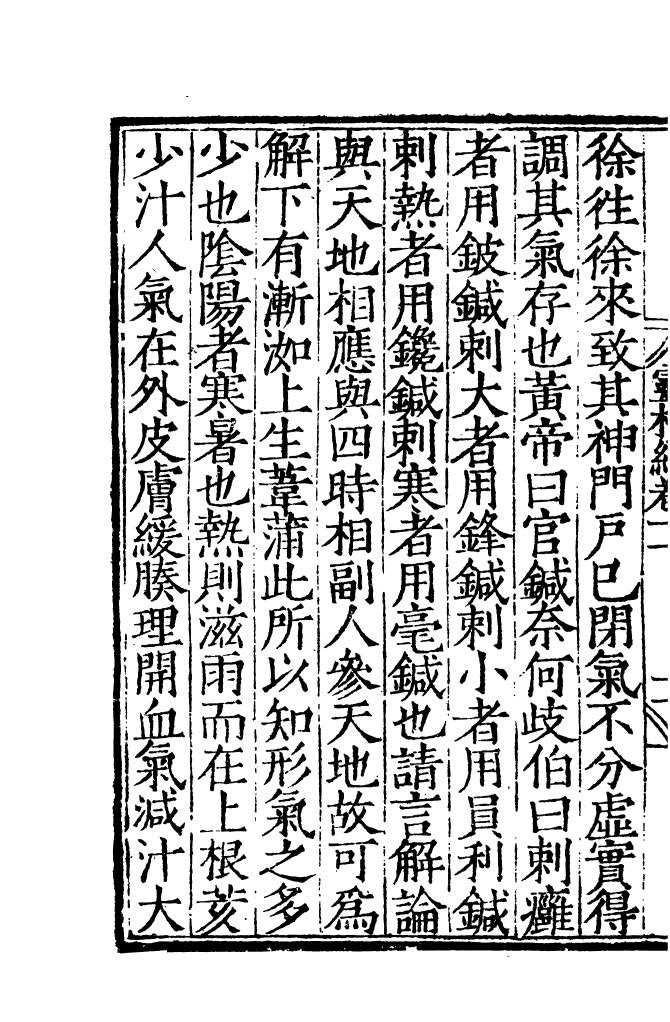 靈樞經卷十一
徐往徐來致其神門戶已閉氣不分虛實得
調其氣存也黃帝曰官鍼奈何歧伯曰刺癰
者用鈹鍼刺大者用鋒鍼刺小者用員利鍼
刺熱者用鑱鍼刺寒者用毫鍼也請言解論
與天地相應與四時相副人參天地故可爲
解下有漸洳上生葦蒲此所以知形氣之多
少也陰陽者寒暑也熱則滋雨而在上根荄
少汁人氣在外皮膚緩腠理開血氣減汁大